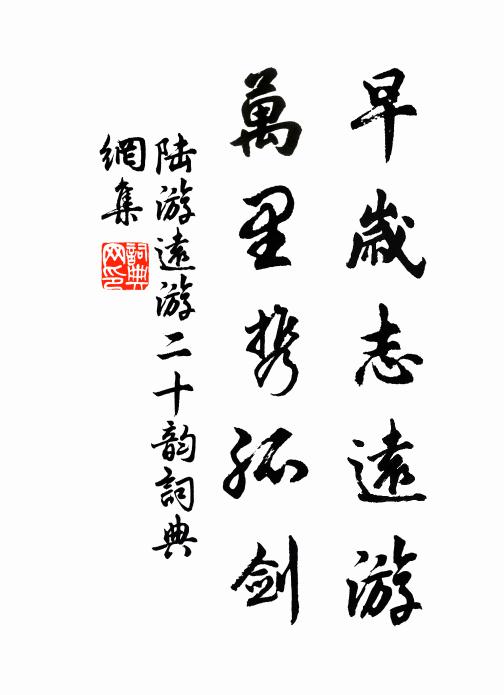 早歲志遠游
萬里携孤劍
陆游遠游二十韵詞典
網集
詞典
网印